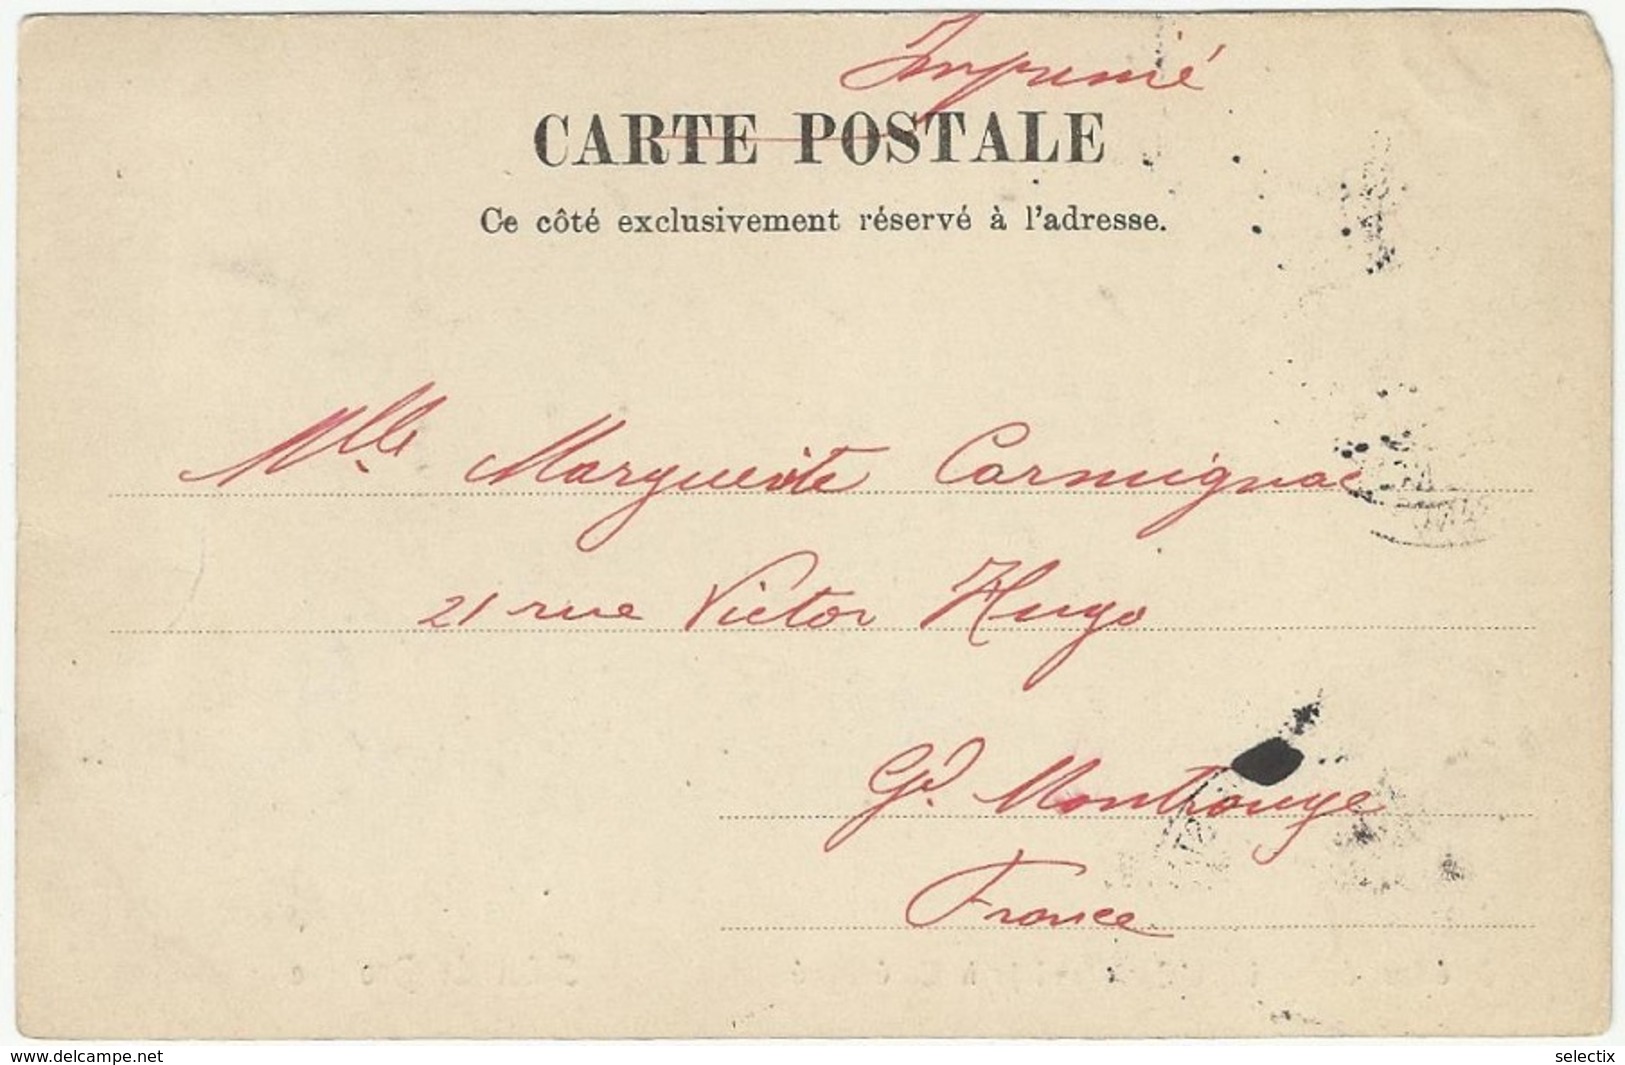 Imprimé
CARTE POSTALE
Ce côté exclusivement réservé à l'adresse.
Mlle Marguerite Carmignac
21 rue Victor Hugo
Gd. Montrouge
France
www.delcampe.net
selectix